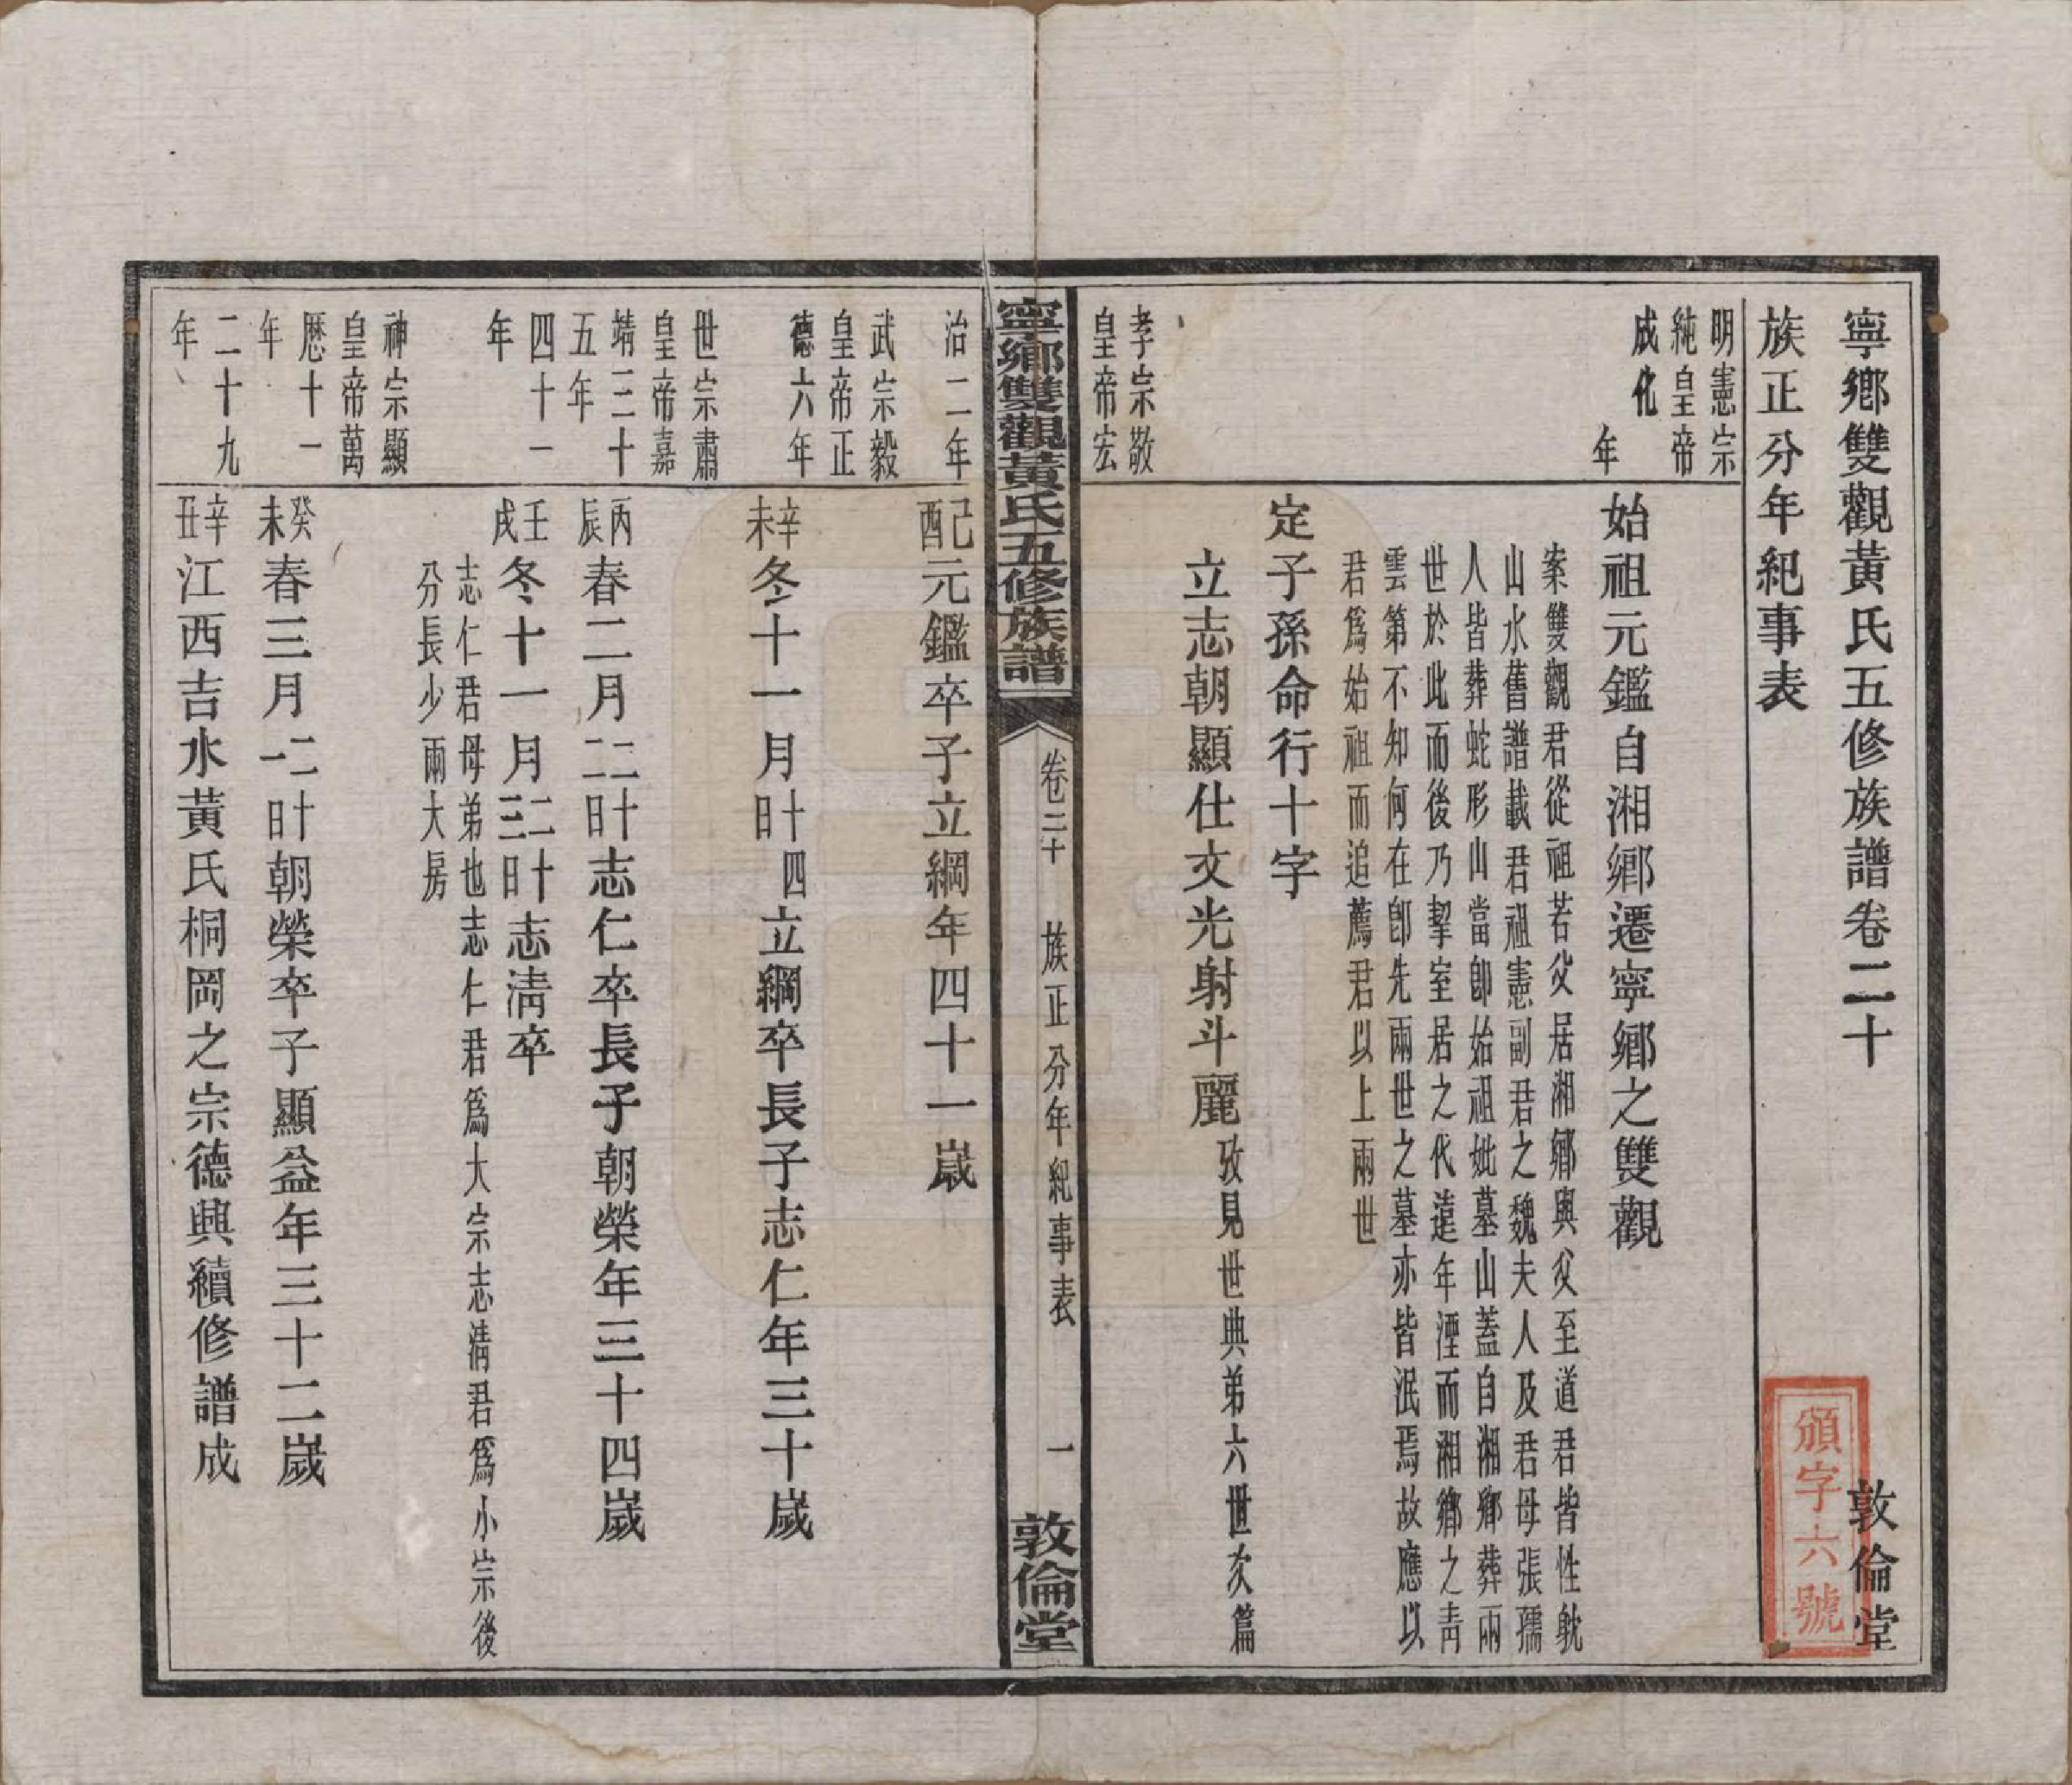 寧鄉雙觀黃氏五修族譜卷二十
敦倫堂
頒字六號
族正分年紀事表
明憲宗
純皇帝
成化
年
始祖元鑑自湘鄉遷寧鄉之雙觀
案雙觀君從祖若父居湘鄉與父至道君皆性躭
山水舊譜載君祖憲副君之魏夫人及君母張孺
人皆葬蛇形山當卽始祖妣墓山蓋自湘鄉葬兩
世於此而後乃挈室居之代遠年湮而湘鄉之靑
雲第不知何在卽先兩世之墓亦皆泯焉故應以
君爲始祖而追薦君以上兩世
定子孫命行十字
立志朝顯仕文光射斗麗
攷見世典弟六世次篇
孝宗敬
皇帝宏
寧鄉雙觀黃氏五修族譜
卷二十
族正分年紀事表
一
敦倫堂
治二年
己酉
元鑑卒子立綱年四十一歲
武宗毅
皇帝正
德六年
辛未
冬十一月十四日立綱卒長子志仁年三十歲
世宗肅
皇帝嘉
靖三十
五年
丙辰
春二月二十二日志仁卒長子朝榮年三十四歲
四十一
年
壬戌
冬十一月二十三日志淸卒
志仁君母弟也志仁君爲大宗志淸君爲小宗後
分長少兩大房
神宗顯
皇帝萬
歷十一
年
癸未
春三月二十一日朝榮卒子顯益年三十二歲
二十九
年
辛丑
江西吉水黃氏桐岡之宗德興續修譜成